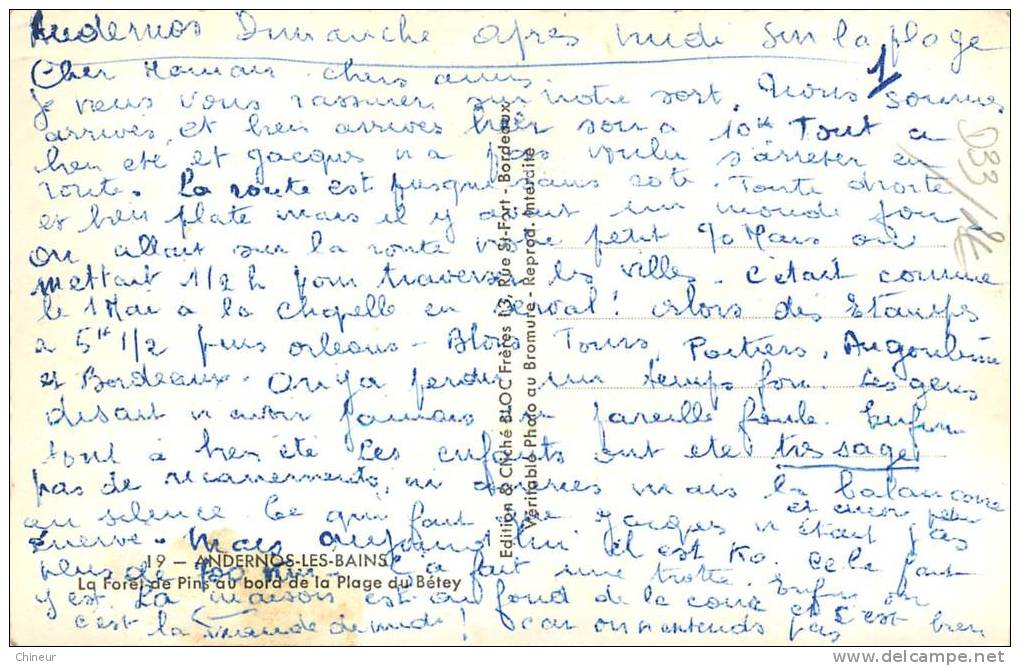 Andernos Dimanche après midi sur la plage
1
Cher Maman chers amis
Je veux vous rassurer sur notre sort. Nous sommes
arrivés et bien arrivés hier soir a 10H Tout a
bien été et Jacques n'a pas voulu s'arreter en
route. La route est presque sans cote. Toute droite
et bien plate mais il y avait un monde fou
On allait sur la route votre petit 90 Mais on
mettait 1/2 h pour traverser les villes. C'était comme
le 1 Mai a la chapelle en Serval! Alors des Etampes
a 5H 1/2 puis Orleans - Blois Tours, Poitiers, Angoulème
et Bordeaux. On y a perdu un temps fou. Les gens
disait n'avoir jamais vu pareille foule. Enfin
tout a bien été Les enfants ont été très sages
pas de ricanements, ni mais la balançoire
au silence. Ce qui fait que Jacques n'était pas
et encore peu
énervé. Mais aujourd'hui il est KO. Cela fait
plus de Ça fait une trotte. Enfin on
y est. La maison est au fond de la cour et c'est bien
c'est la viande de midi! car on n'entends pas
D33/
19 — ANDERNOS-LES-BAINS
La Forêt de Pins au bord de la Plage du Bétey
Edition & Cliché BLOC Frères 13, Rue St-Fort - Bordeaux
Véritable Photo au Bromure - Reprod. Interdite
Chineur
www.delcampe.net